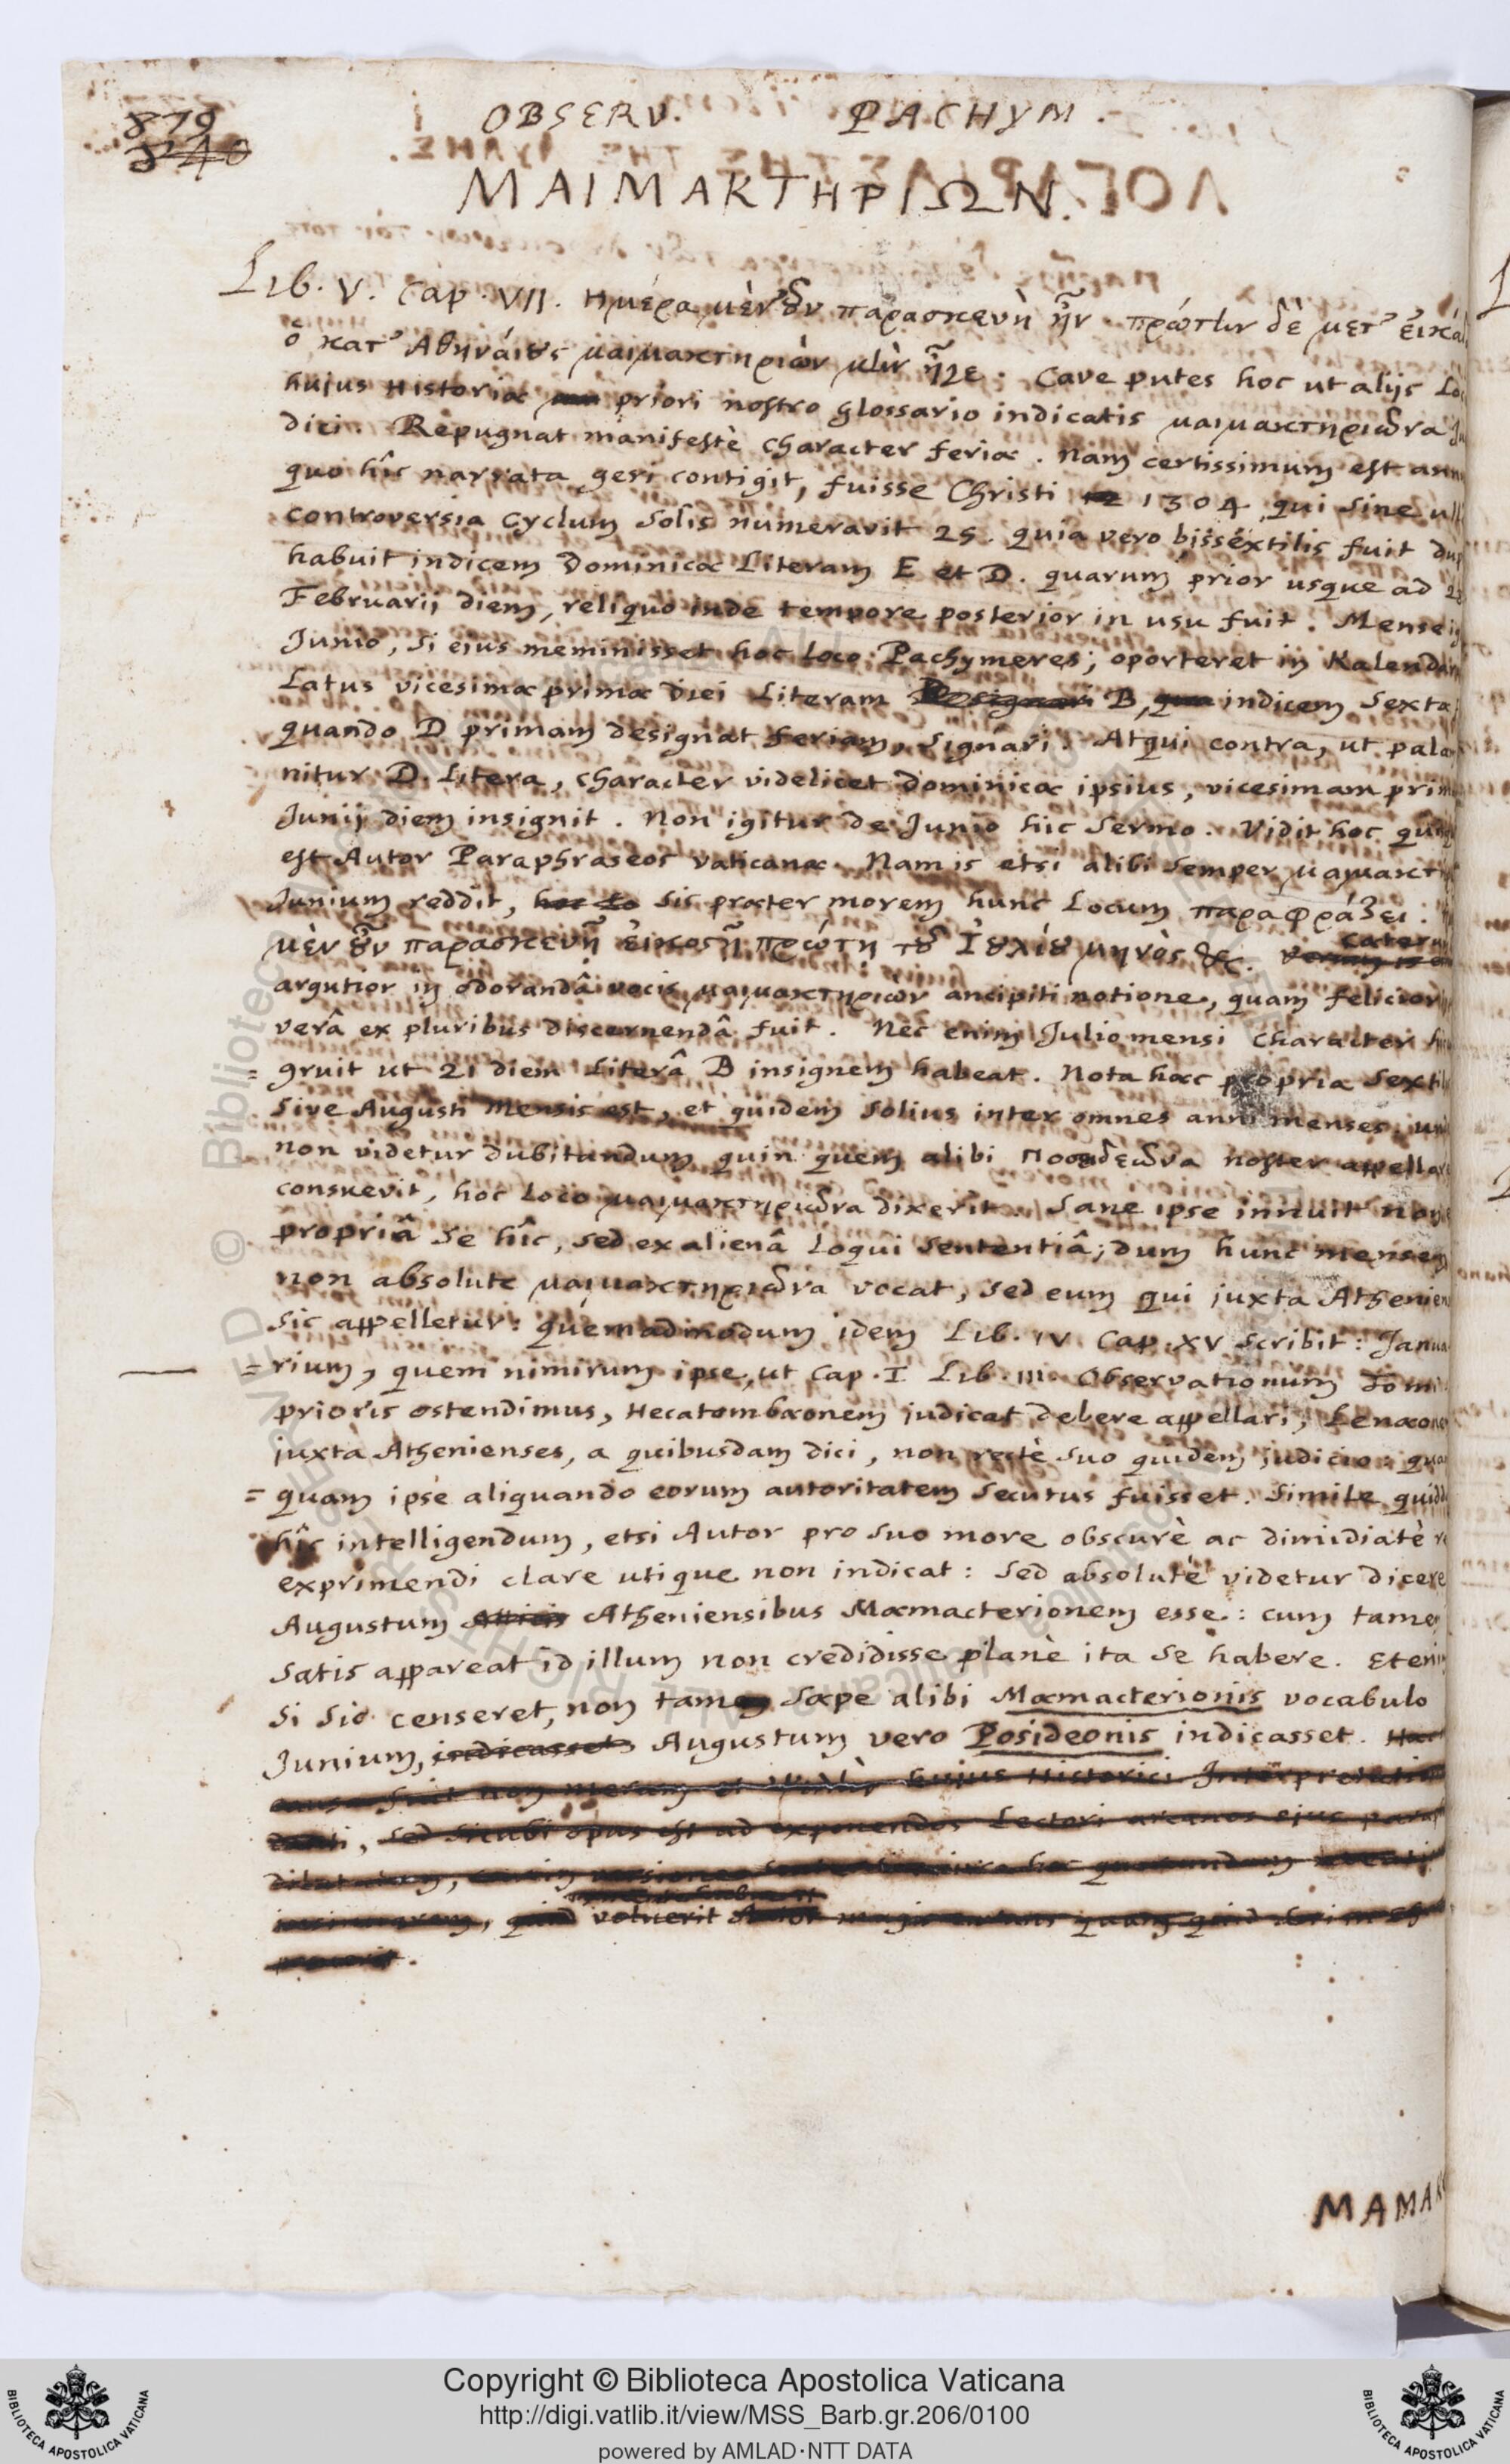 879
840
OBSERV. PACHYM.
ΜΑΙΜΑΚΤΗΡΙΩΝ.
Lib. V. Cap. VII. Ημέρα μὲν ȣ̃ν παρασκευὴ ἦν. πρώτην δὲ μετ' εἰκά
ὁ κατ' Αθηναίȣς μαιμακτηριὼν μὴν ἦγε. Cave putes hoc ut alijs Lo
hujus Historiæ priori nostro glossario indicatis μαιμακτηριῶνα Ju
dici. Repugnat manifestè character feriæ. Nam certissimum est ann
quo hîc narrata geri contigit, fuisse Christi 1304 qui sine ull
controversia Cyclum Solis numeravit 25. quia vero bissextilis fuit dup
habuit indicem Dominicæ Literam E et D. quarum prior usque ad
Februarij diem, reliquo inde tempore posterior in usu fuit. Mense ig
Junio, si ejus meminisset hoc Loco Pachymeres, oporteret in Kalendar
Latus vicesimæ primæ diei Literam Designari B, quæ indicem Sextæ
quando D primam designat feriam, signari. Atqui contra, ut pala
nitur D. Litera, character videlicet Dominicæ ipsius, vicesimam prim
Junij diem insignit. Non igitur de Junio hic sermo. Vidit hoc quis
est Autor Paraphraseos vaticanæ. Nam is etsi alibi semper μαιμακτη
Junium reddit, hoc Lo sic præter morem hunc Locum παραφράζει:
μὲν ȣ̃ν παρασκευῇ εἰκοςῇ πρώτη τȣ͂ Ἰȣλίȣ μηνὸς &c.
Cæter
argutior in odorandâ vocis μαιμακτηριὼν ancipiti notione, quam felicior
verâ ex pluribus discernendâ fuit. Nec enim Julio mensi Character
= gruit ut 21 diem Literâ B insignem habeat. Nota hæc propria Sexti
sive Augusti Mensis est, et quidem solius inter omnes anni menses, un
non videtur dubitandum quin quem alibi Ποσιδεῶνα noster appella
consuevit, hoc Loco μαιμακτηριῶνα dixerit. Sane ipse innuit non
propriâ se hîc, sed ex alienâ Loqui sententiâ; dum hunc mensem
non absolute μαιμακτηριῶνα vocat, sed eum qui juxta Athenien
sic appelletur: quemadmodum idem Lib. IV Cap. XV scribit: Janua
= rium, quem nimirum ipse, ut Cap. I Lib. III. Observationum Tomi
prioris ostendimus, Hecatombæonem judicat debere appellari, Lenæone
juxta Athenienses, a quibusdam dici, non rectè suo quidem judicio: qua
= quam ipse aliquando eorum autoritatem secutus fuisset. Simile quidd
hîc intelligendum, etsi Autor pro suo more obscurè ac dimidiatè
exprimendi clare utique non indicat: Sed absolutè videtur dicere
Augustum Atticis Atheniensibus Mæmacterionem esse: cum tame
satis appareat id illum non credidisse planè ita se habere. Eteni
si sic censeret, non tam sæpe alibi Mæmacterionis vocabulo
Junium, indicasset Augustum vero Posideonis indicasset. Hæc
causa fuit hujus Historici
sed sicubi opus est ad exponendos Lectori arcanos ejus
voluerit
MAMAK
Copyright © Biblioteca Apostolica Vaticana
http://digi.vatlib.it/view/MSS_Barb.gr.206/0100
powered by AMLAD·NTT DATA
BIBLIOTECA APOSTOLICA VATICANA
BIBLIOTECA APOSTOLICA VATICANA